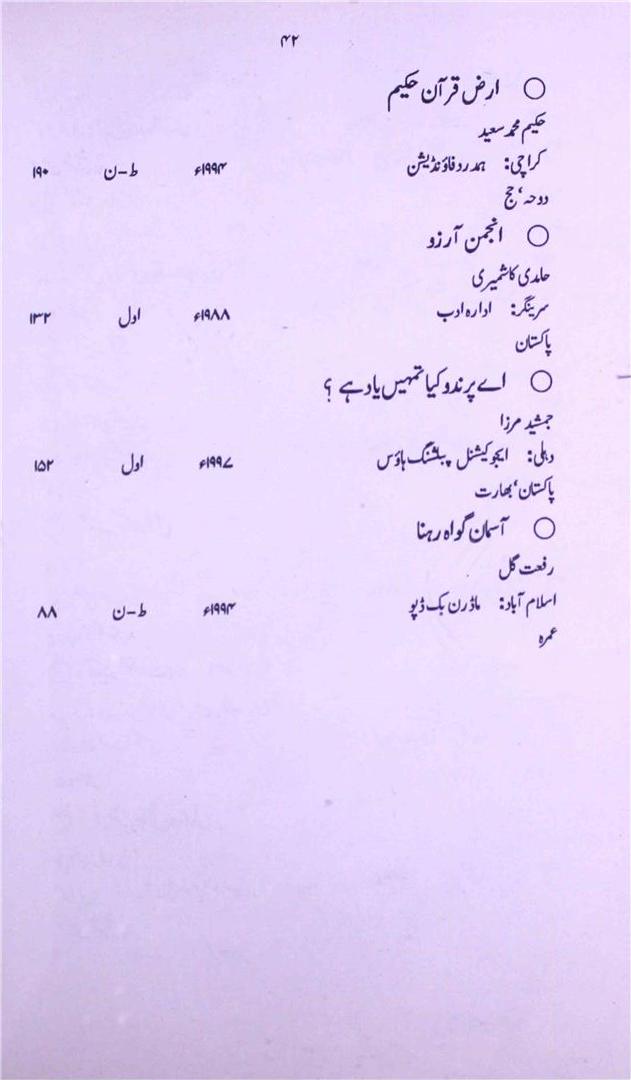 ۴۲
○ ارض قرآن حکیم
حکیم محمد سعید
کراچی: ہمدرد فاؤنڈیشن ۱۹۹۴ء ط-ن ۱۹۰
دوحہ، حج
○ انجمن آرزو
حامدی کاشمیری
سرینگر: ادارہ ادب ۱۹۸۸ء اول ۱۳۲
پاکستان
○ اے پرندو کیا تمہیں یاد ہے ؟
جمشید مرزا
دہلی: ایجوکیشنل پبلشنگ ہاؤس ۱۹۹۷ء اول ۱۵۲
پاکستان، بھارت
○ آسمان گواہ رہنا
رفعت گل
اسلام آباد: ماڈرن بک ڈپو ۱۹۹۴ء ط-ن ۸۸
عمرہ